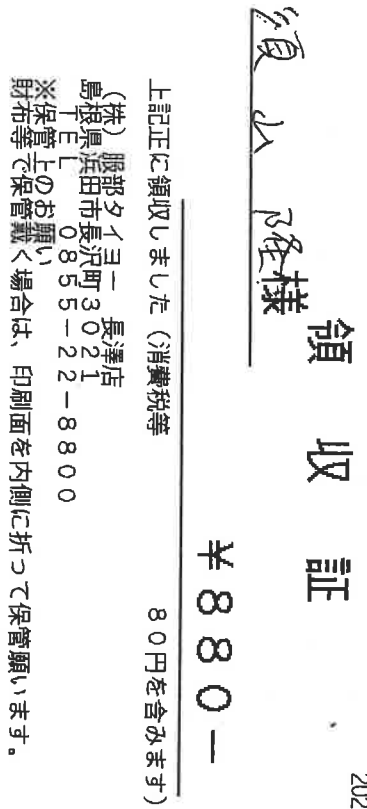 202
領収証
須山隆様
¥880-
上記正に領収しました（消費税等　80円を含みます）
（株）服部タイヨー　長澤店
島根県浜田市長沢町3021
TEL　0855-22-8800
※保管上のお願い
財布等で保管戴く場合は、印刷面を内側に折って保管願います。